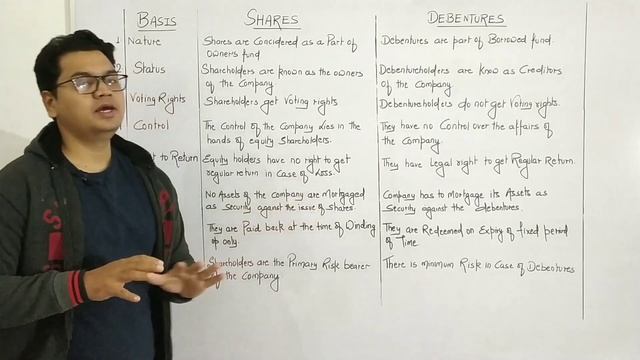 BASIS SHARES DEBENTURES
1 Nature Shares are Concidered as a Part of Debentures are part of Borrowed fund.
owner's fund
2. Status Shareholders are known as the owners Debentureholders are know as Creditors
of the Company of the Company.
Voting Rights Shareholders get Voting rights Debentureholders do not get Voting rights.
Control The Control of the Company Lies in the They have no Control over the affairs of
hands of equity Shareholders. the Company.
t to Return Equity holders have no right to get They have Legal right to get Regular Return.
regular return in Case of Loss.
No Assets of the company are Mortgaged Company has to Mortgage its Assets as
as Security against the issue of Shares. Security against the debentures.
They are Paid back at the time of Winding They are Redeemed on Expiry of fixed period
up only. of Time.
Shareholders are the Primary Risk bearer There is minimum Risk in Case of Debentures
of the Company